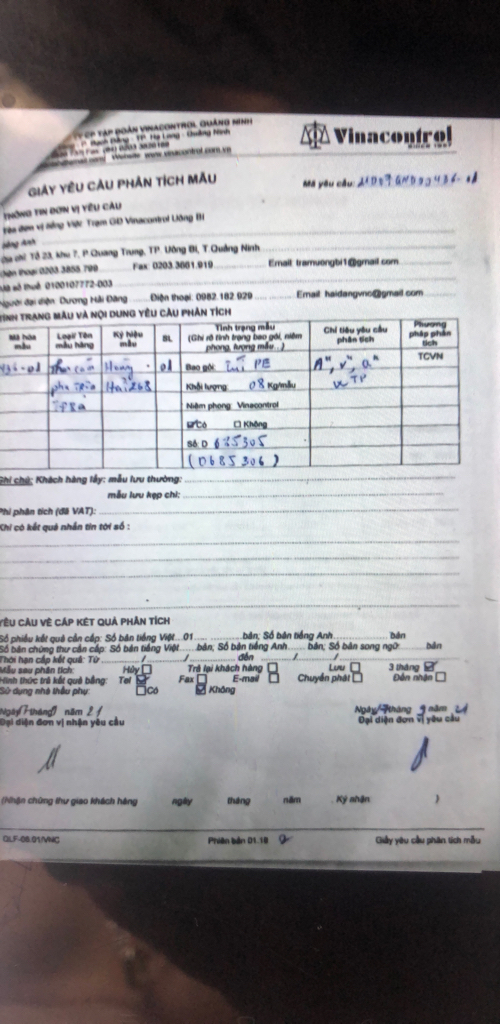 TY CP TẬP ĐOÀN VINACONTROL QUẢNG NINH
P. Bạch Đằng - TP. Hạ Long - Quảng Ninh
Fax: (84) 0203
Website: www.vinacontrol.com.vn
Vinacontrol
SINCE 1957
GIẤY YÊU CẦU PHÂN TÍCH MẪU
Mã yêu cầu:
THÔNG TIN ĐƠN VỊ YÊU CẦU
đơn vị tiếng Việt: Trạm GĐ Vinacontrol Uông Bí
tiếng Anh
chỉ: Tổ 23, khu 7, P Quang Trung, TP. Uông Bí, T.Quảng Ninh
thoại: 0203.3856.799 Fax: 0203.3661.919 Email: tramuongbi1@gmail.com
số thuế: 0100107772-003
Người đại diện: Dương Hải Đăng Điện thoại: 0982.182.929 Email: haidangvnc@gmail.com
TÌNH TRẠNG MẪU VÀ NỘI DUNG YÊU CẦU PHÂN TÍCH
Mã hóa mẫu Loại/Tên mẫu hàng Ký hiệu mẫu SL Tình trạng mẫu (Ghi rõ tình trạng bao gói, niêm phong, lượng mẫu...) Chỉ tiêu yêu cầu phân tích Phương pháp phân tích
436-01 01 Bao gói: Túi PE TCVN
Khối lượng: 08 Kg/mẫu
Niêm phong: Vinacontrol
Có Không
Số: D 685305
(D685306)
Ghi chú: Khách hàng lấy: mẫu lưu thường:
mẫu lưu kẹp chì:
Phí phân tích (đã VAT):
Khi có kết quả nhắn tin tới số:
YÊU CẦU VỀ CẤP KẾT QUẢ PHÂN TÍCH
Số phiếu kết quả cần cấp: Số bản tiếng Việt...01 bản; Số bản tiếng Anh bản
Số bản chứng thư cần cấp: Số bản tiếng Việt bản; Số bản tiếng Anh bản; Số bản song ngữ bản
Thời hạn cấp kết quả: Từ / / đến / /
Mẫu sau phân tích: Hủy Trả lại khách hàng Lưu 3 tháng
Hình thức trả kết quả bằng: Tel Fax E-mail Chuyển phát Đến nhận
Sử dụng nhà thầu phụ: Có Không
Ngày 17 tháng 9 năm 21 Ngày 17 tháng 9 năm 21
Đại diện đơn vị nhận yêu cầu Đại diện đơn vị yêu cầu
(Nhận chứng thư giao khách hàng ngày tháng năm . Ký nhận )
QLF-08.01/VNC Phiên bản 01.18 Giấy yêu cầu phân tích mẫu